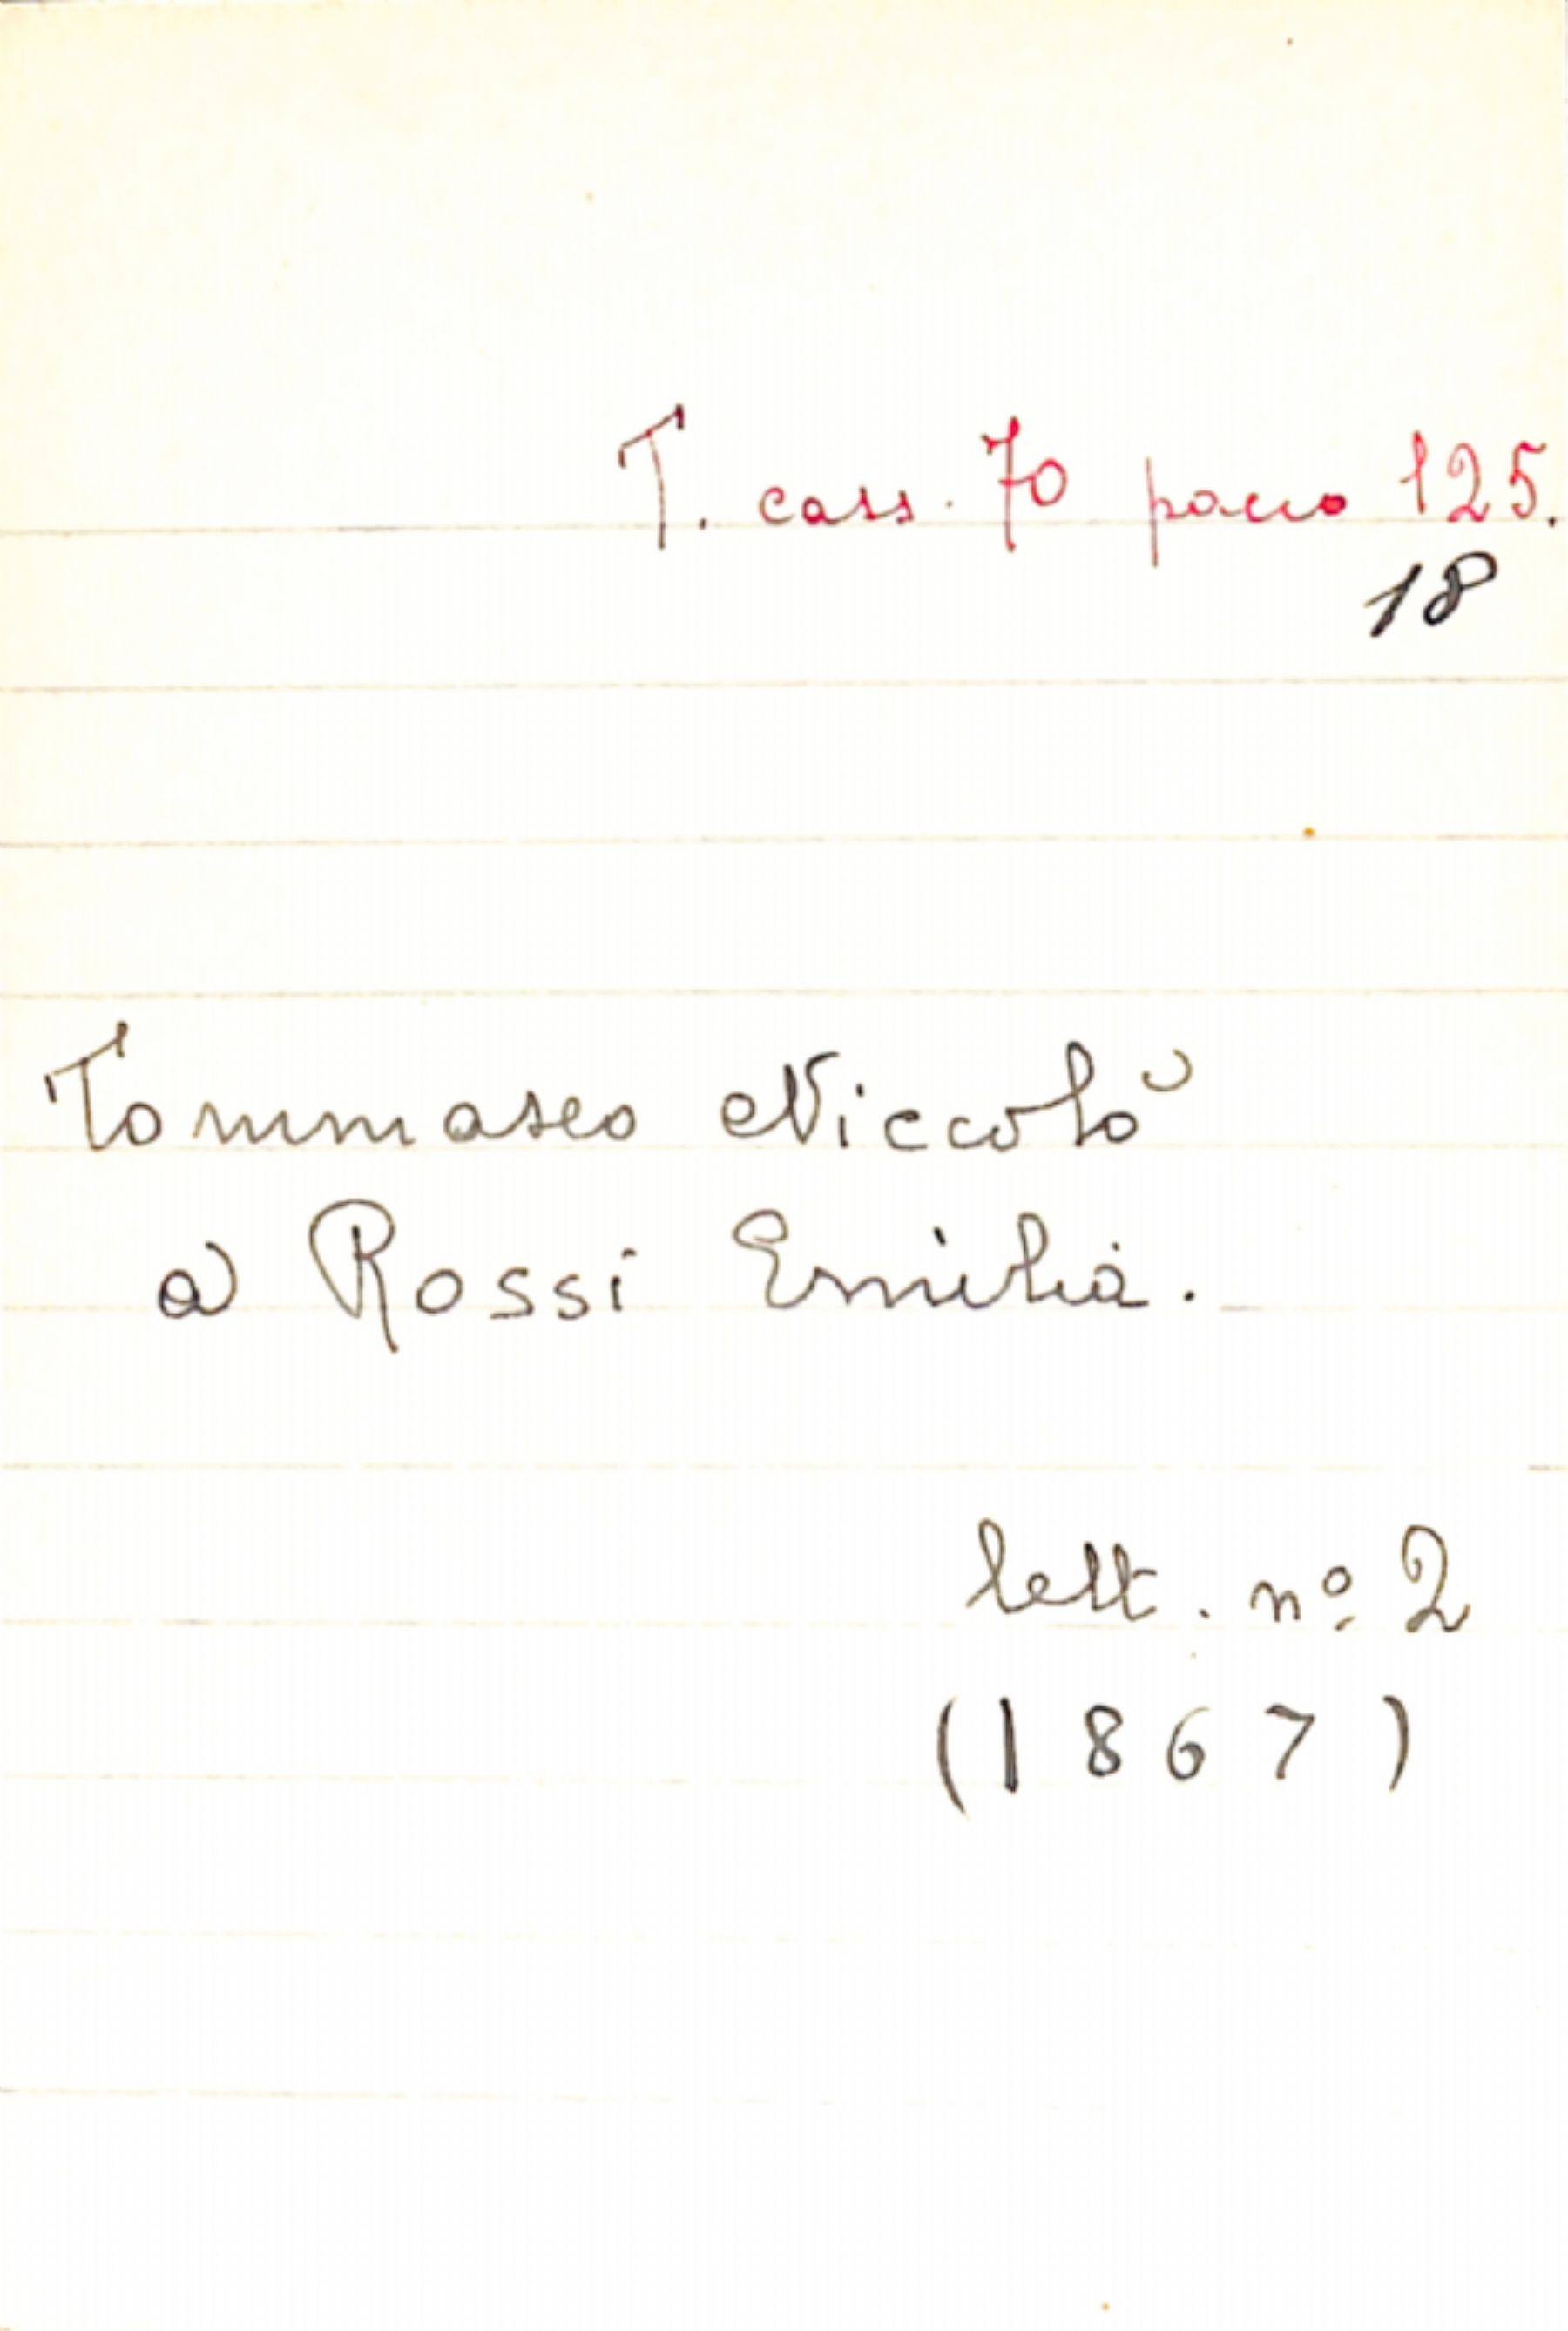 T. cass. 70 pacco 125.
18
Tommaseo Niccolò
a Rossi Emilia.
lett. nº 2
(1867)